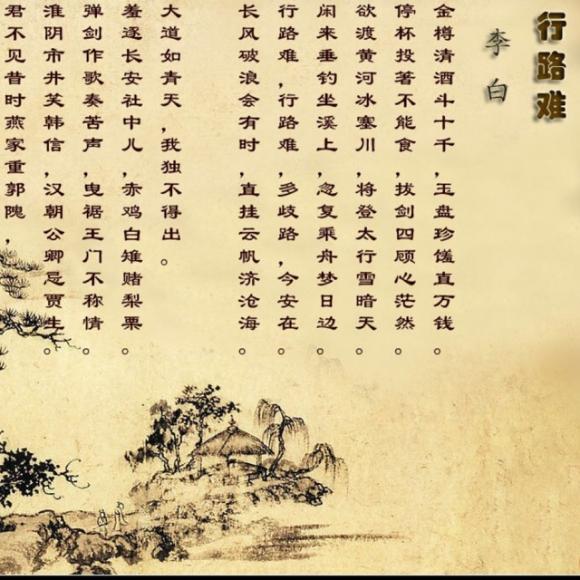 行路难
李白
金樽清酒斗十千,玉盘珍馐直万钱。
停杯投著不能食,拔剑四顾心茫然。
欲渡黄河冰塞川,将登太行雪暗天。
闲来垂钓坐溪上,忽复乘舟梦日边。
行路难,行路难,多歧路,今安在。
长风破浪会有时,直挂云帆济沧海。
大道如青天,我独不得出。
羞逐长安社中儿,赤鸡白雉赌梨栗。
弹剑作歌奏苦声,曳裾王门不称情。
淮阴市井笑韩信,汉朝公卿忌贾生。
君不见昔时燕家重郭隗,